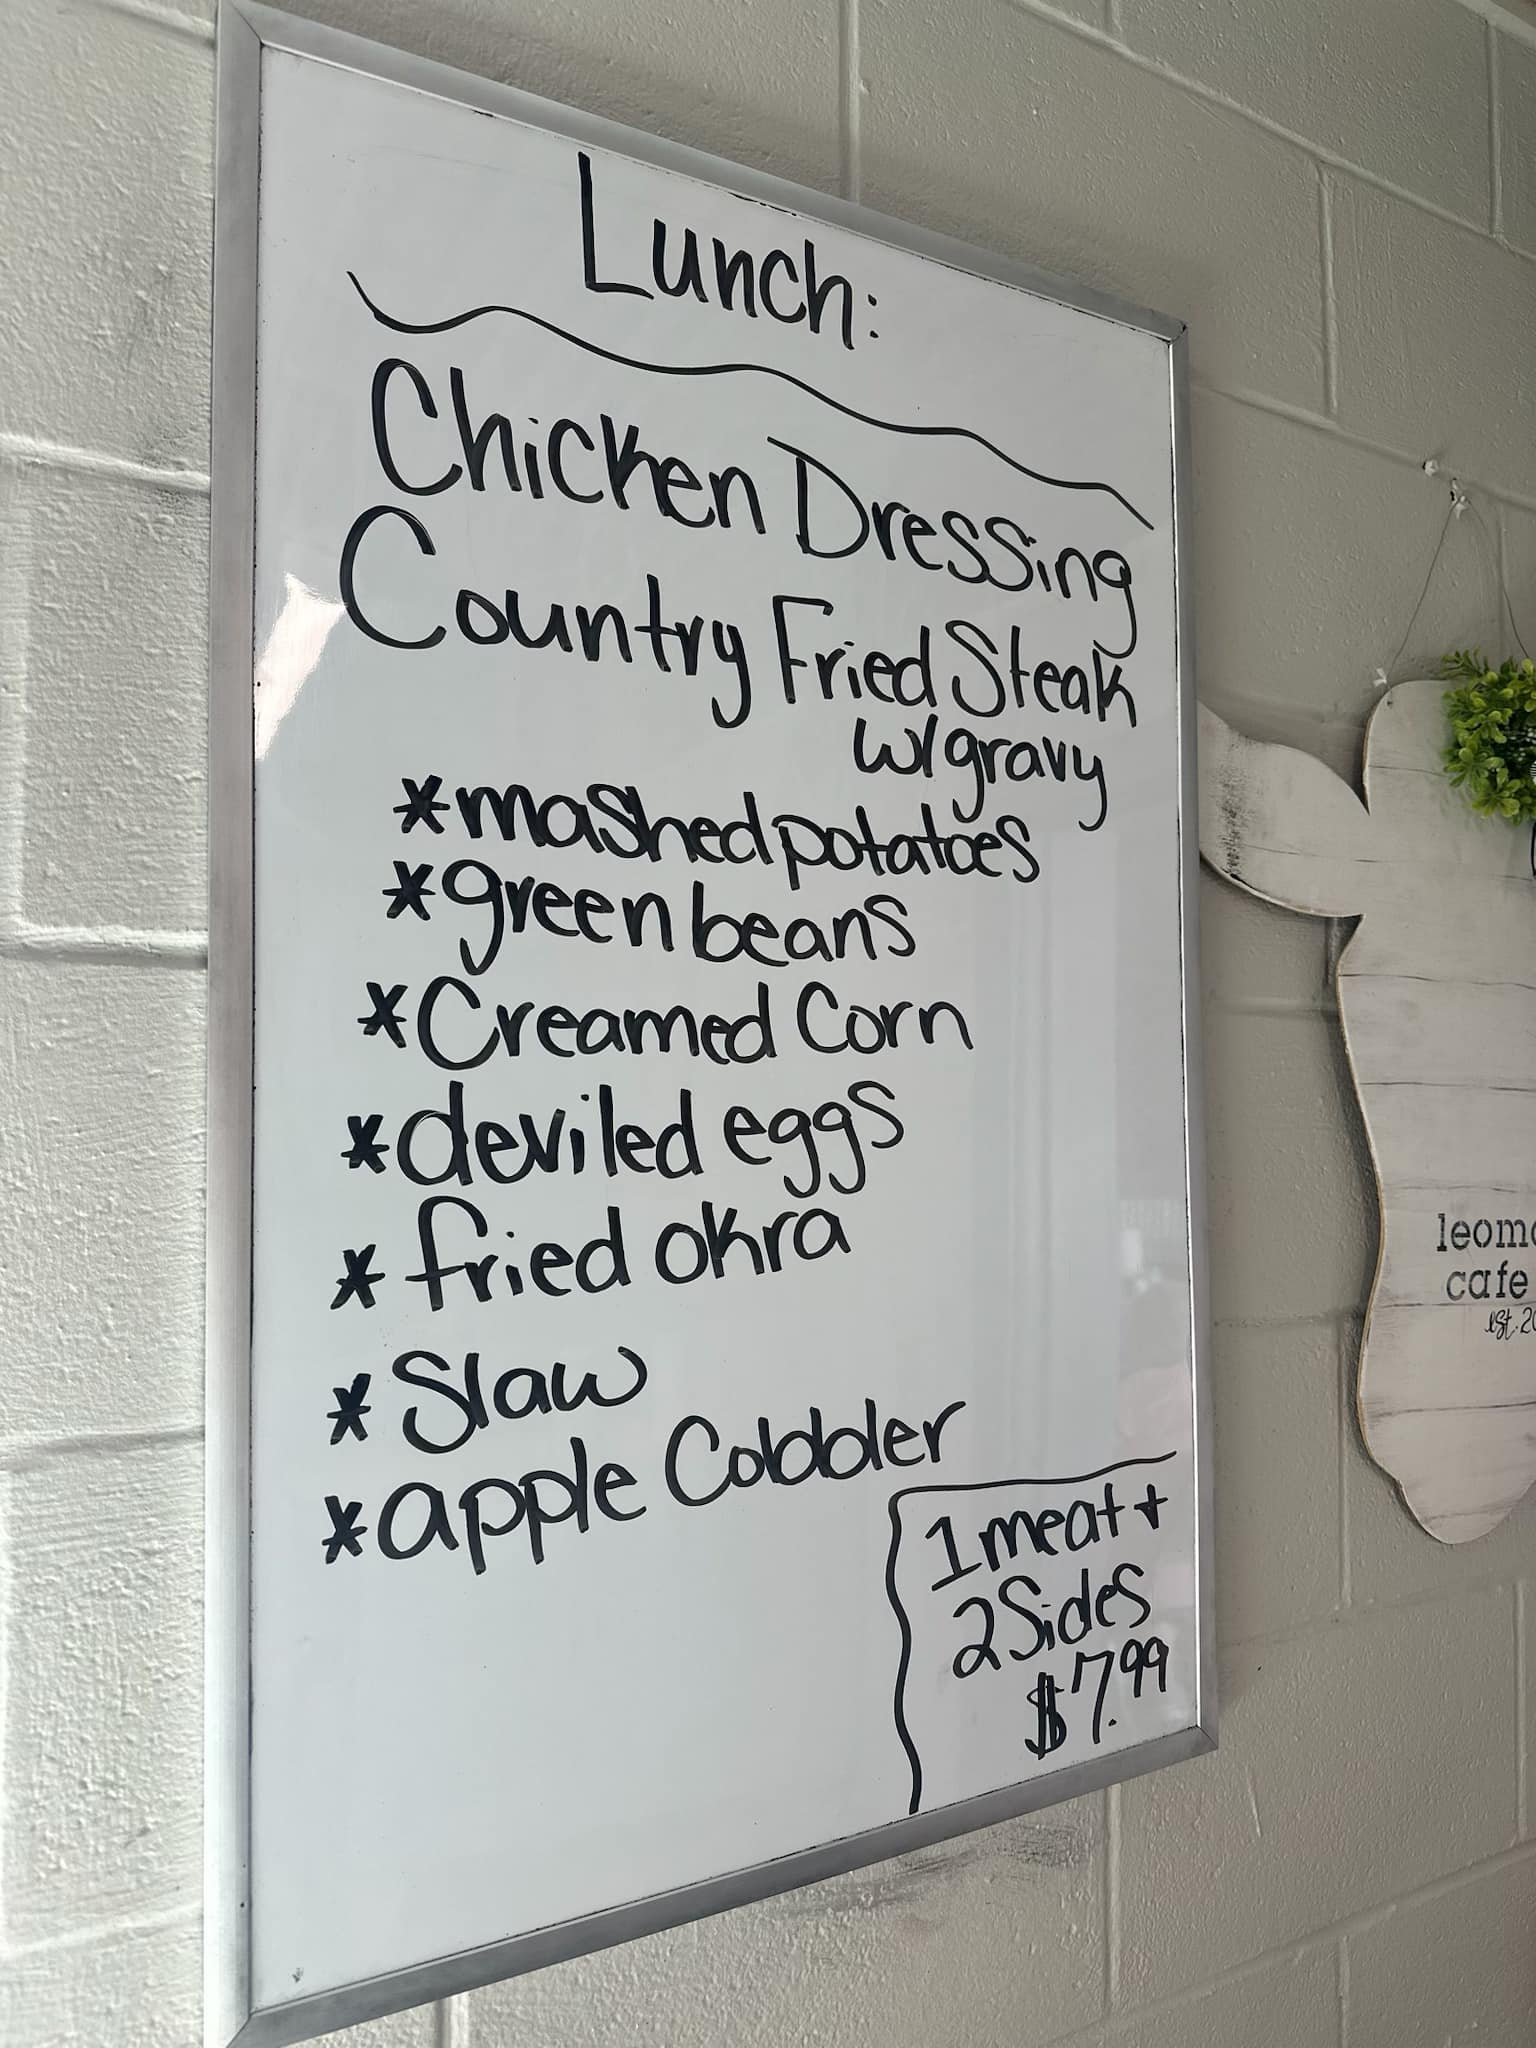 Lunch:
Chicken Dressing
Country Fried Steak
w/gravy
*mashed potatoes
*green beans
*Creamed Corn
*deviled eggs
* fried okra
* Slaw
*apple Cobbler
1 meat +
2 Sides
$7.99
cafe
est. 20